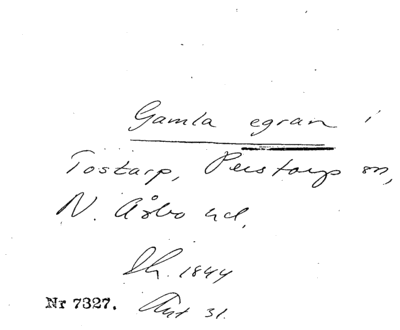 Gamla egran i
Tostarp, Perstorps sn,
N. Åsbo hd.
Sk. 1844
Nr 7327. Ant 31.